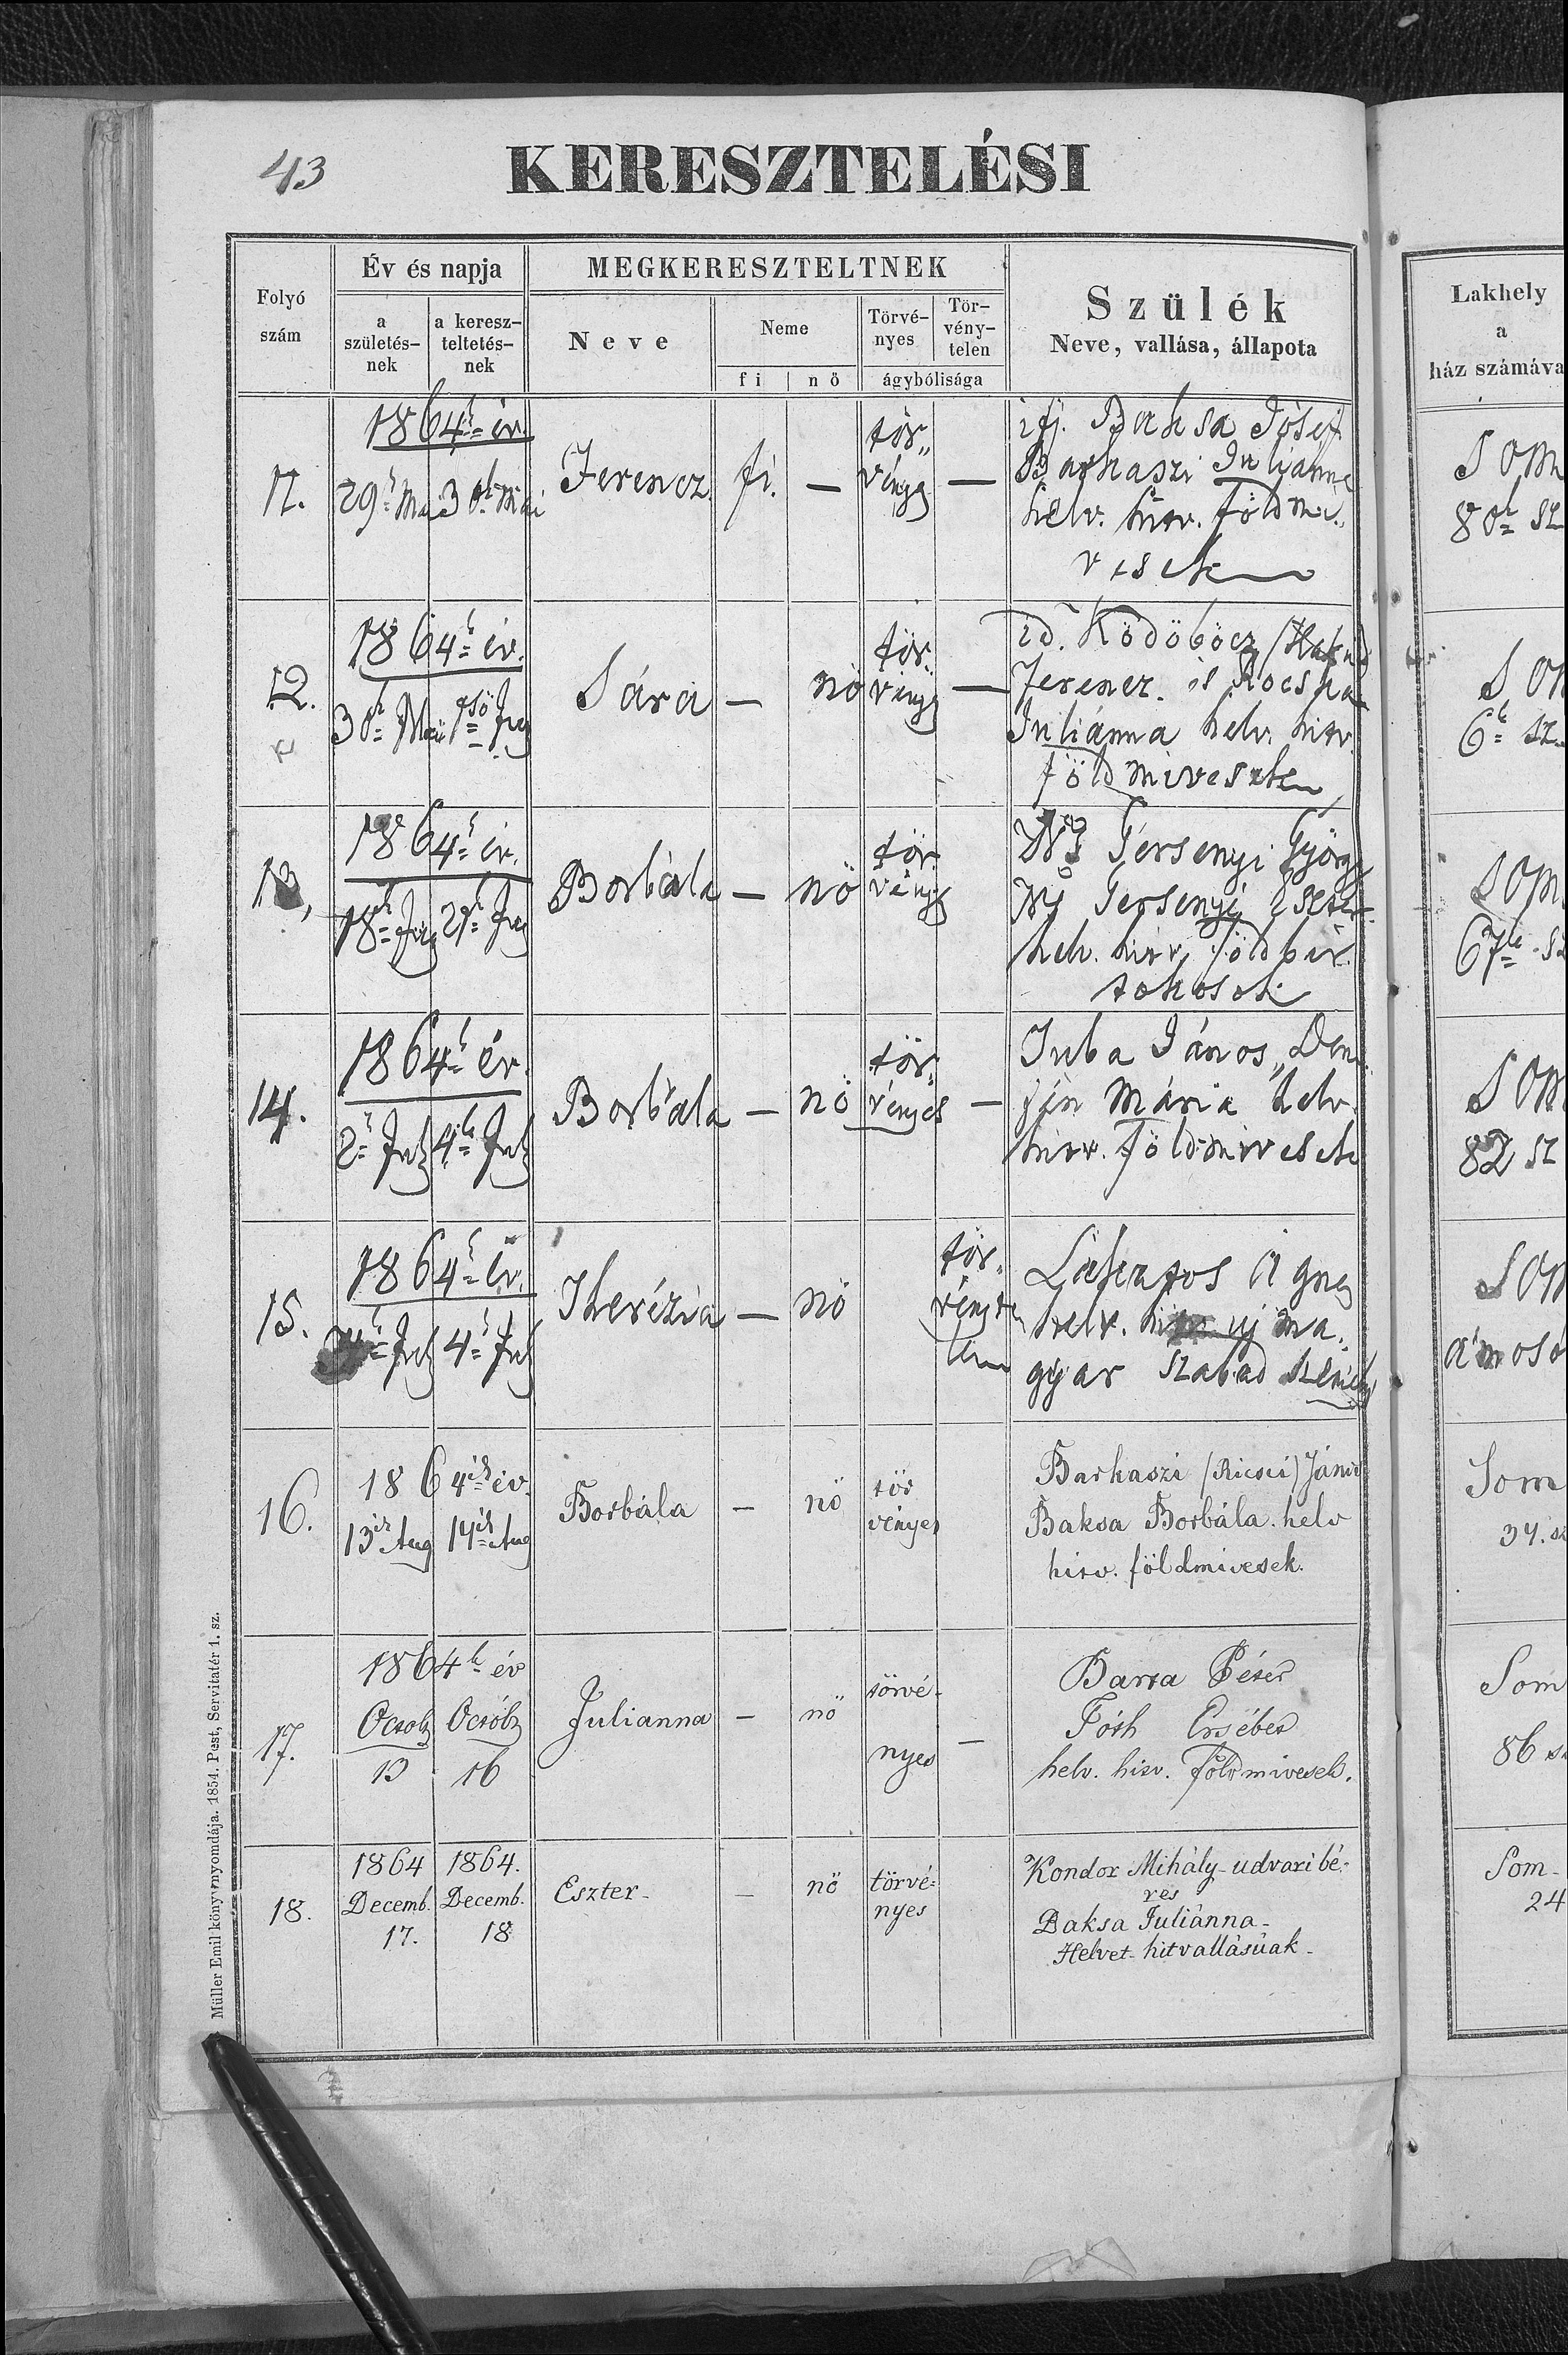 43
KERESZTELÉSI
Folyó
szám
Év és napja
a
születés-
nek
a keresz-
teltetés-
nek
MEGKERESZTELTNEK
Neve
Neme
fi
nö
Törvé-
nyes
Tör-
vény-
telen
ágybólisága
Szülék
Neve, vallása, állapota
Lakhely
a
ház számáva
1864k év.
29k Ma 30k Mai
Ferencz fi. —
tör„
vénys —
ifj. Baksa Jósef
Barkaszi Julianna
helv. hitv. földmi„
vesek
Som
80k sz
12.
1864k év.
30k Mai 1ső Jun
Sára — nö
tör.
vénys —
id. Ködöböcz
Ferencz. és Kocska
Juliánna helv. hitv.
földmivesek
Som
6k sz.
13,
1864k év.
18k Jun 29k Jun
Borbála — nö
tör.
vénys
Ns Gersenyi György
Ns Gersenyi Eszter
helv. hitv. földbir.
tokosok
Som
67k sz
14.
1864k év.
2k Jul 4k Jul
Borbála — nö
tör.
vényes —
Juba János, Dem
ján Mária helv.
hitv. földmivesek
Som
82 sz
15.
1864k év.
Jul 4k Jul
Therézia — nö
tör.
vényte
len
Lakatos Ágnes
helv. uj ma.
gyar szabad személy
Som
16.
1864ik év.
13ik Aug 14ik Aug
Borbála — nö
tör
vényes
Barkaszi (Ricsei) János
Baksa Borbála. helv
hitv. földmivesek.
Som
34. sz
17.
1864k év
Octob Octób
13 16
Julianna — nö
törvé-
nyes —
Barta Péter
Tóth Ersébet
helv. hitv. földmivesek.
Som
86 sz
18.
1864 1864.
Decemb. Decemb.
17. 18
Eszter- — nö
törvé-
nyes
Kondor Mihály- udvari bé-
res
Baksa Juliánna-
Helvet- hitvallásúak-
Som-
24
Müller Emil könyvnyomdája. 1854. Pest, Servitatér 1. sz.